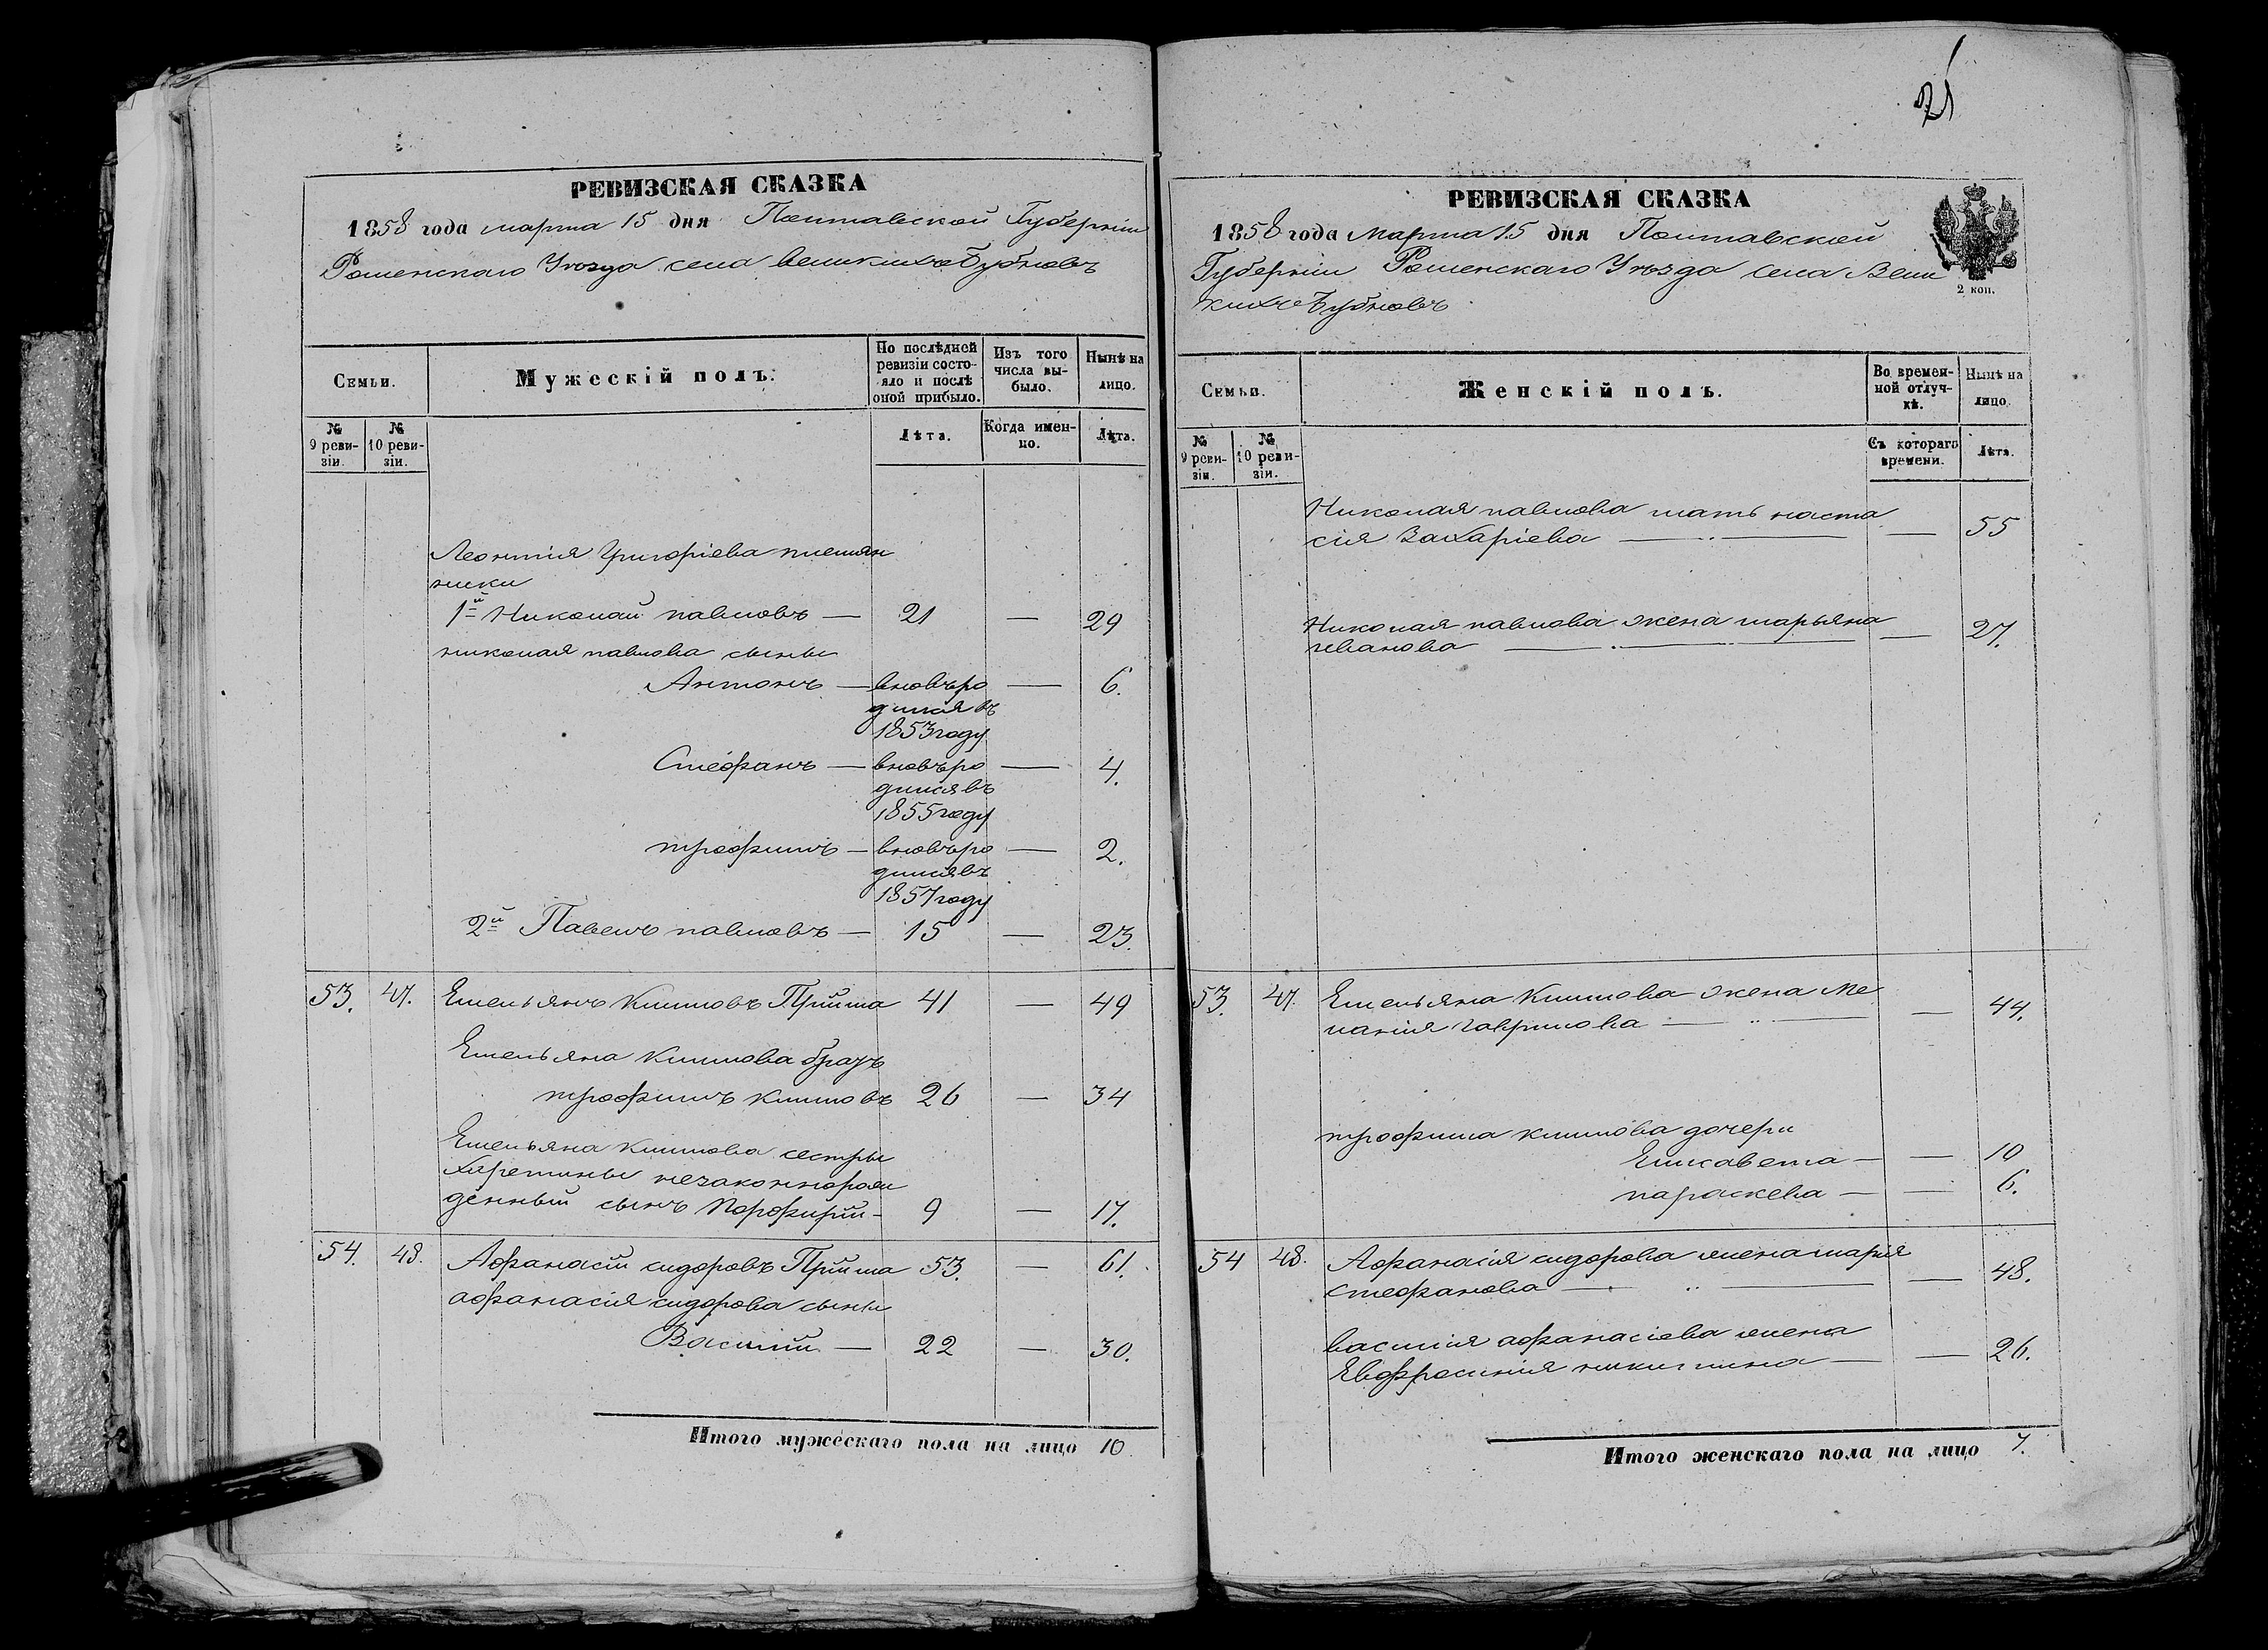 21
РЕВИЗСКАЯ СКАЗКА
1858 года марта 15 дня Полтавской Губерніи
Роменскаго Уѣзда села великихъ Бубновъ
Семьи.
Мужескій полъ.
По послѣдней ревизіи состояло и послѣ оной прибыло.
Изъ того числа выбыло.
Нынѣ на лицо.
№ 9 ревизіи.
№ 10 ревизіи.
Лѣта.
Когда именно.
Лѣта.
Леонтія Григоріева племян
ники
1й Николай павловъ — 21 — 29
николая павлова сыны
Антонъ — вновьро — 6.
дился въ
1853 году
Стефанъ — вновьро — 4.
дился въ
1855 году
трофимъ — вновьро — 2.
дился въ
1857 году
2й Павелъ павловъ — 15 — 23.
53. 47. Емельянъ Климовъ Прийма 41 — 49
Емельяна Климова братъ
трофимъ климовъ 26 — 34
Емельяна Климова сестры
Харетины незаконнорож
денный сынъ Порфирий - 9 — 17.
54. 48. Афанасій сидоровъ Прийма 53. — 61.
афанасія сидорова сыны
Василій — 22 — 30.
Итого мужескаго пола на лицо 10
РЕВИЗСКАЯ СКАЗКА
1858 года Марта 15 дня Полтавской
Губерніи Роменскаго Уѣзда села Вели
кихъ Бубновъ
2 коп.
Семьи.
Женскій полъ.
Во временной отлучкѣ.
Нынѣ на лицо.
№ 9 ревизіи.
№ 10 ревизіи.
Съ котораго времени.
Лѣта.
Николая павлова мать наста
сія Захаріева — — 55
Николая павлова жена марьяна
иванова — — 27.
53. 47. Емельяна Климова жена Ме
ланія гаврилова — — 44.
трофима климова дочери
Елисавета — — 10
параскева — — 6.
54 48. Афанасія сидорова жена марія
стефанова — — 48.
василія афанасіева жена
Евфросинія никитина — — 26.
Итого женскаго пола на лицо 7.